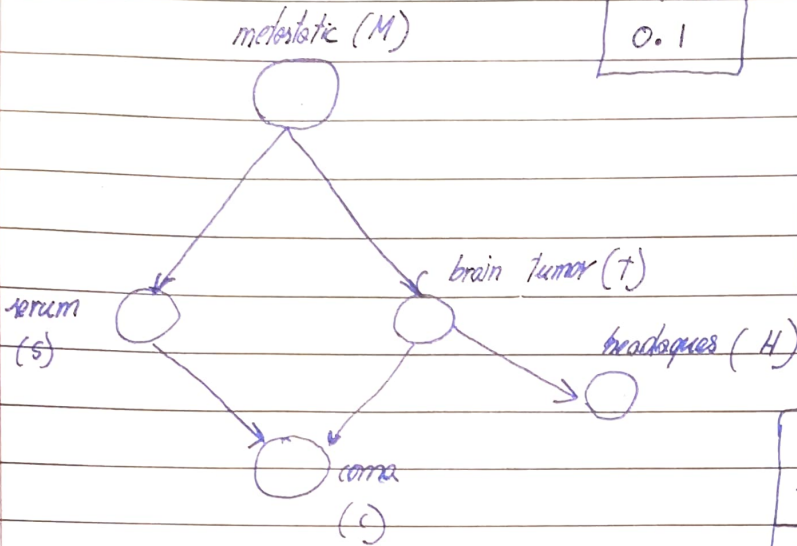 metastatic (M)
0.1
brain tumor (T)
serum
(S)
headaques (H)
coma
(C)